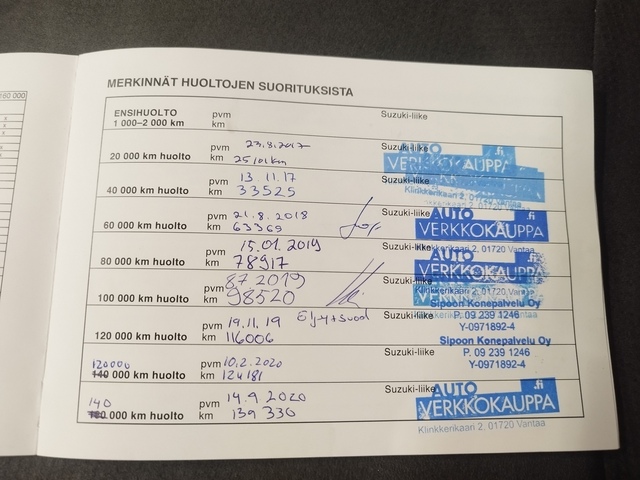 160 000
MERKINNÄT HUOLTOJEN SUORITUKSISTA
ENSIHUOLTO pvm Suzuki-liike
1 000–2 000 km km
20 000 km huolto pvm 23.8.2017 Suzuki-liike
km 25101km
AUTO .fi
VERKKOKAUPPA
40 000 km huolto pvm 13.11.17 Suzuki-liike
km 33525
Klinkkerikaari 2, 01720 Vantaa
60 000 km huolto pvm 21.8.2018 Suzuki-liike
km 63369
AUTO .fi
VERKKOKAUPPA
Klinkkerikaari 2, 01720 Vantaa
80 000 km huolto pvm 15.01.2019 Suzuki-liike
km 78917
AUTO .fi
VERKKOKAUPPA
Klinkkerikaari 2, 01720 Vantaa
100 000 km huolto pvm 8.7.2019 Suzuki-liike
km 98520
120 000 km huolto pvm 19.11.19 Suzuki-liike
km 116006
Sipoon Konepalvelu Oy
P. 09 239 1246
Y-0971892-4
120000
140 000 km huolto pvm 10.2.2020 Suzuki-liike
km 124181
Sipoon Konepalvelu Oy
P. 09 239 1246
Y-0971892-4
140
000 km huolto pvm 14.9.2020 Suzuki-liike
km 139 330
AUTO .fi
VERKKOKAUPPA
Klinkkerikaari 2, 01720 Vantaa